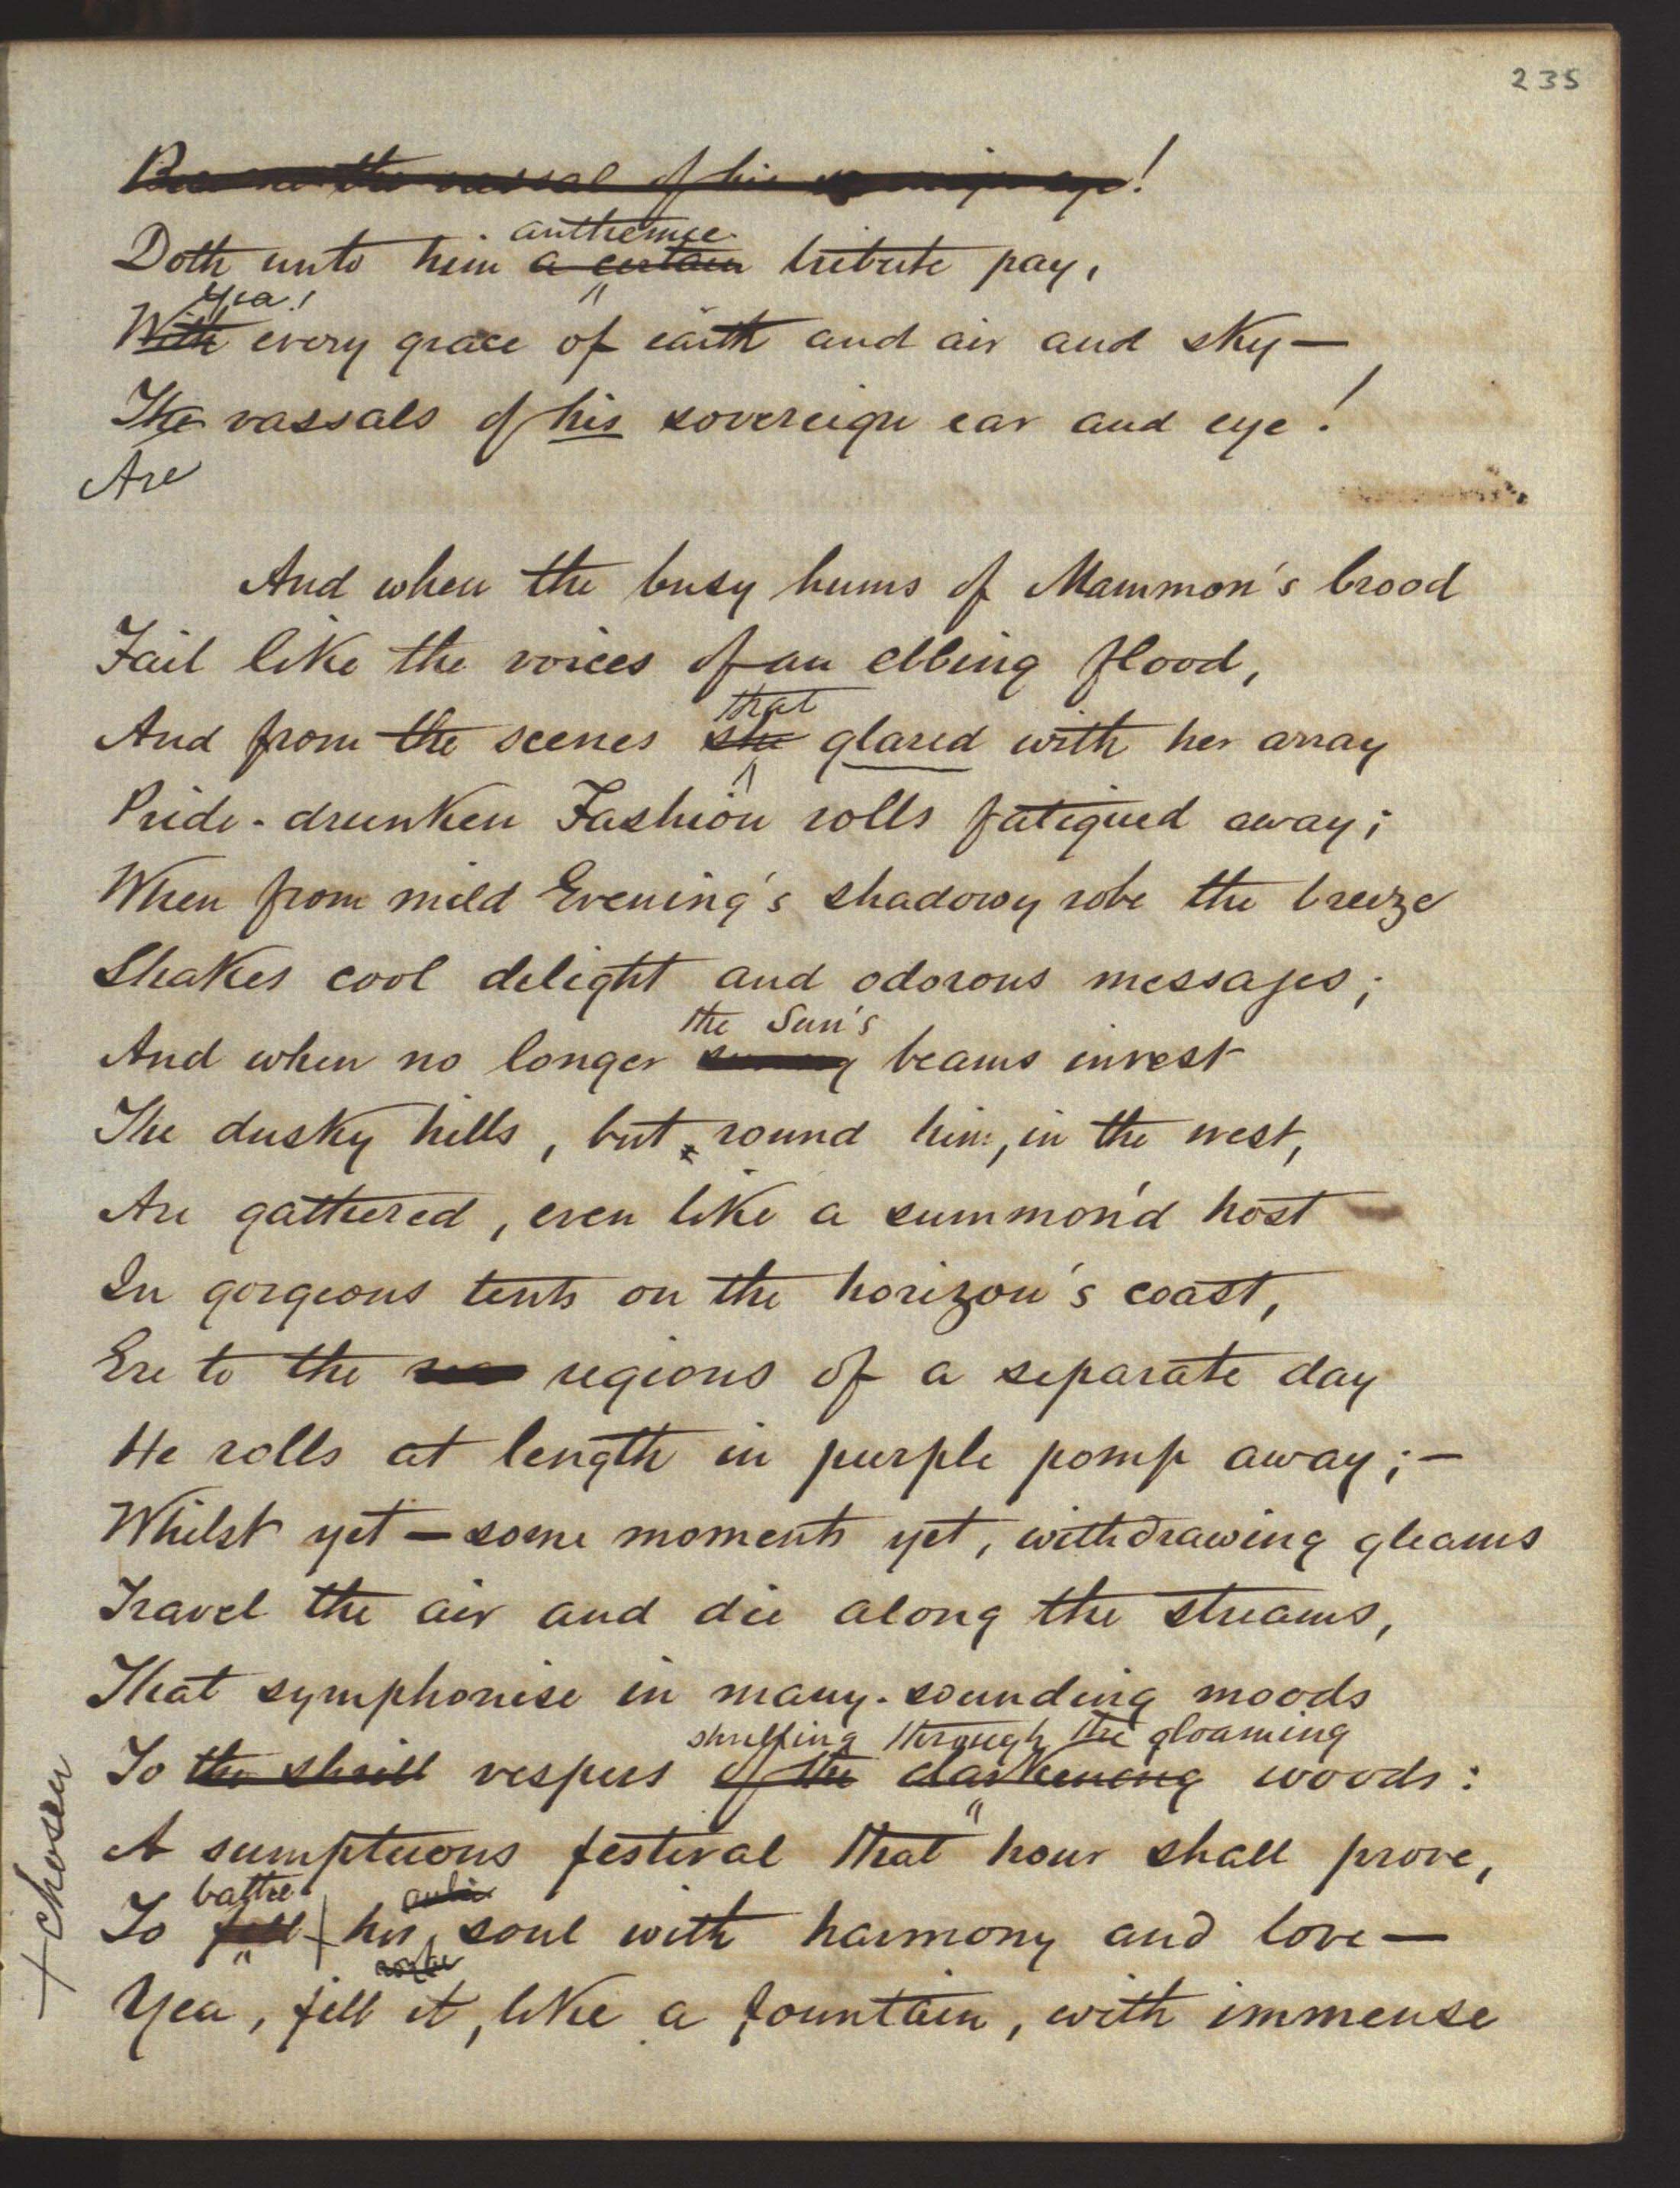 235
the vassal of his eye!
anthemic
Doth unto him a certain tribute pay,
Yea!
With every grace of earth and air and sky—
The vassals of his sovereign ear and eye!
Are
And when the busy hums of Mammon's brood
Fail like the voices of an ebbing flood,
that
And from the scenes she glared with her array
Pride-drunken Fashion rolls fatigued away;
When from mild Evening's shadowy robe the breeze
Shakes cool delight and odorous messages;
the Sun's
And when no longer sunny beams invest
The dusky hills, but round him, in the west,
Are gathered, even like a summon'd host
In gorgeous tents on the horizon's coast,
Ere to the regions of a separate day
He rolls at length in purple pomp away;—
Whilst yet—some moments yet, withdrawing gleams
Travel the air and die along the streams,
That symphonise in many-sounding moods
shrilling through the gloaming
To the shrill vespers of the darkening woods:
A sumptuous festival that hour shall prove,
bathe
To fill + his soul with harmony and love—
Yea, fill it, like a fountain, with immense
+ chosen